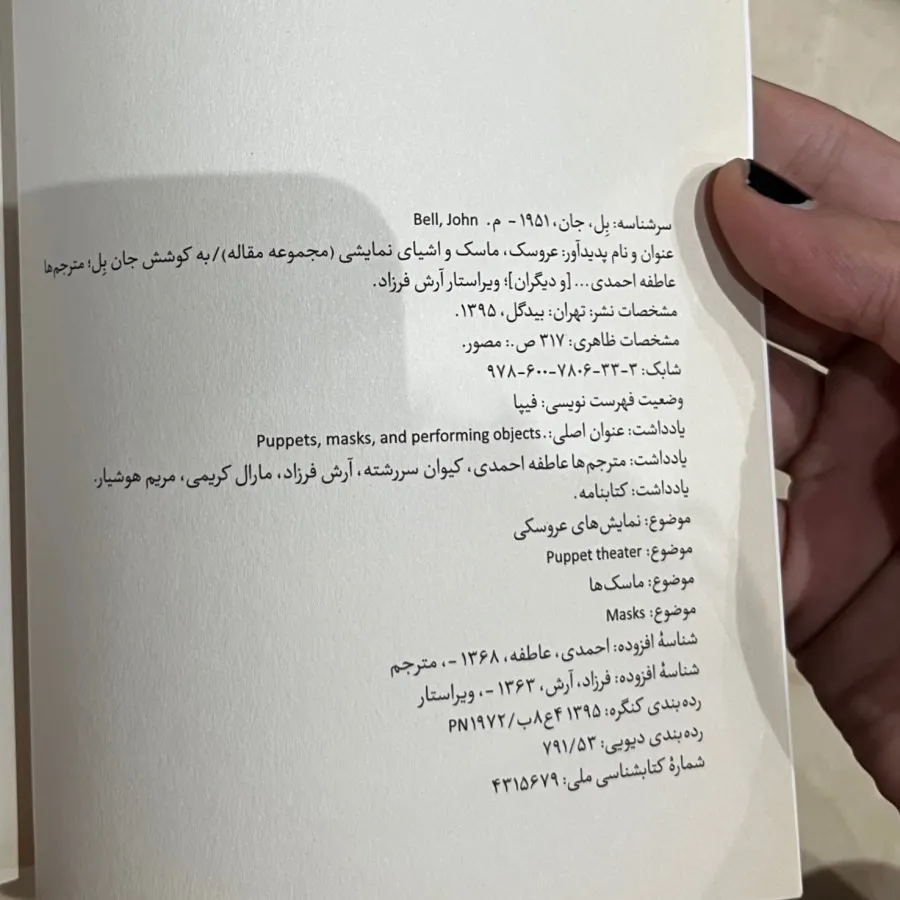 سرشناسه: بِل، جان، ۱۹۵۱ - م. Bell, John
عنوان و نام پدیدآور: عروسک، ماسک و اشیای نمایشی (مجموعه مقاله)/ به کوشش جان بِل؛ مترجم‌ها
عاطفه احمدی... [و دیگران]؛ ویراستار آرش فرزاد.
مشخصات نشر: تهران: بیدگل، ۱۳۹۵.
مشخصات ظاهری: ۳۱۷ ص.: مصور.
شابک: ۹۷۸-۶۰۰-۷۸۰۶-۳۳-۳
وضعیت فهرست نویسی: فیپا
یادداشت: عنوان اصلی:.Puppets, masks, and performing objects
یادداشت: مترجم‌ها عاطفه احمدی، کیوان سررشته، آرش فرزاد، مارال کریمی، مریم هوشیار.
یادداشت: کتابنامه.
موضوع: نمایش‌های عروسکی
موضوع: Puppet theater
موضوع: ماسک‌ها
موضوع: Masks
شناسهٔ افزوده: احمدی، عاطفه، ۱۳۶۸ -، مترجم
شناسهٔ افزوده: فرزاد، آرش، ۱۳۶۳ -، ویراستار
رده‌بندی کنگره: ۱۳۹۵ ۴ع۸ب/PN۱۹۷۲
رده‌بندی دیویی: ۷۹۱/۵۳
شمارهٔ کتابشناسی ملی: ۴۳۱۵۶۷۹